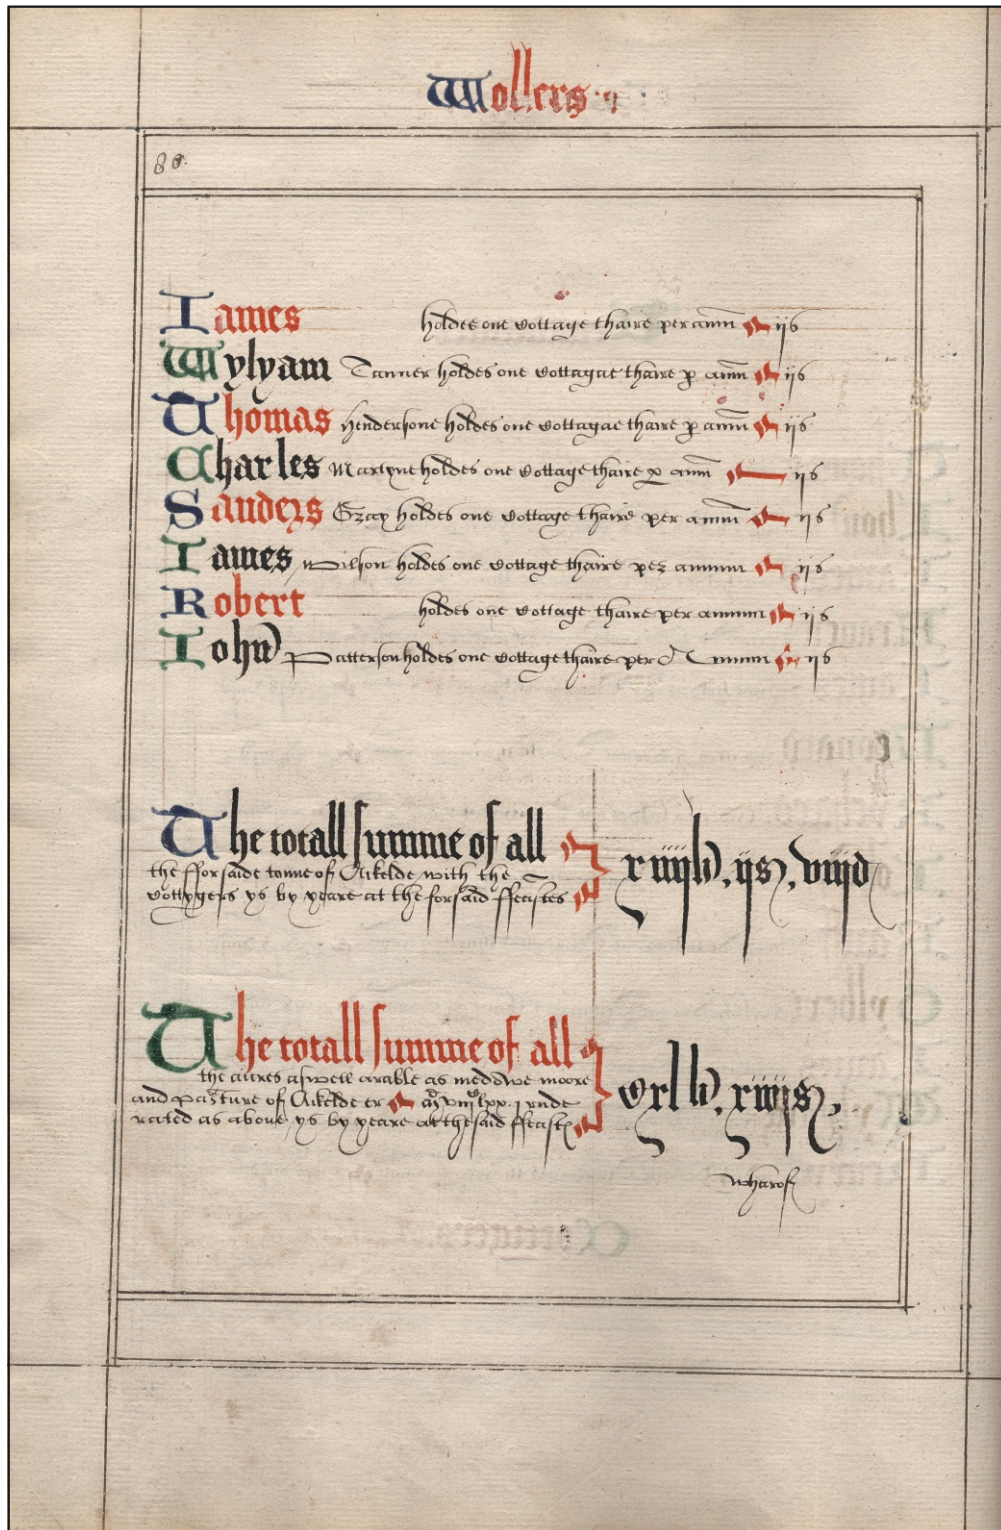 Wollers
80.
James holdes one cottage thaire per annu ijs
Wylyam Tanner holdes one cottagae thaire p annu ijs
Thomas Hendersone holdes one cottagae thaire p annu ijs
Charles Martyne holdes one cottage thaire p annu ijs
Sanders Gray holdes one cottage thaire per annu ijs
James Wilson holdes one cottage thaire per annum ijs
Robert holdes one cottage thaire per annum ijs
John Pattersonholdes one cottage thaire per Annum ijs
The totall summe of all
the fforsaide towne of Aikelde with the
cottygers ys by yeare at the forsaid ffeastes
xiiijli. ijs, viijd
The totall summe of all
the acres aswell arable as meddwe moore
and pasture of Aikelde
rated as above ys by yeare at the said ffeast
cxl li. xiiijs,
wharof